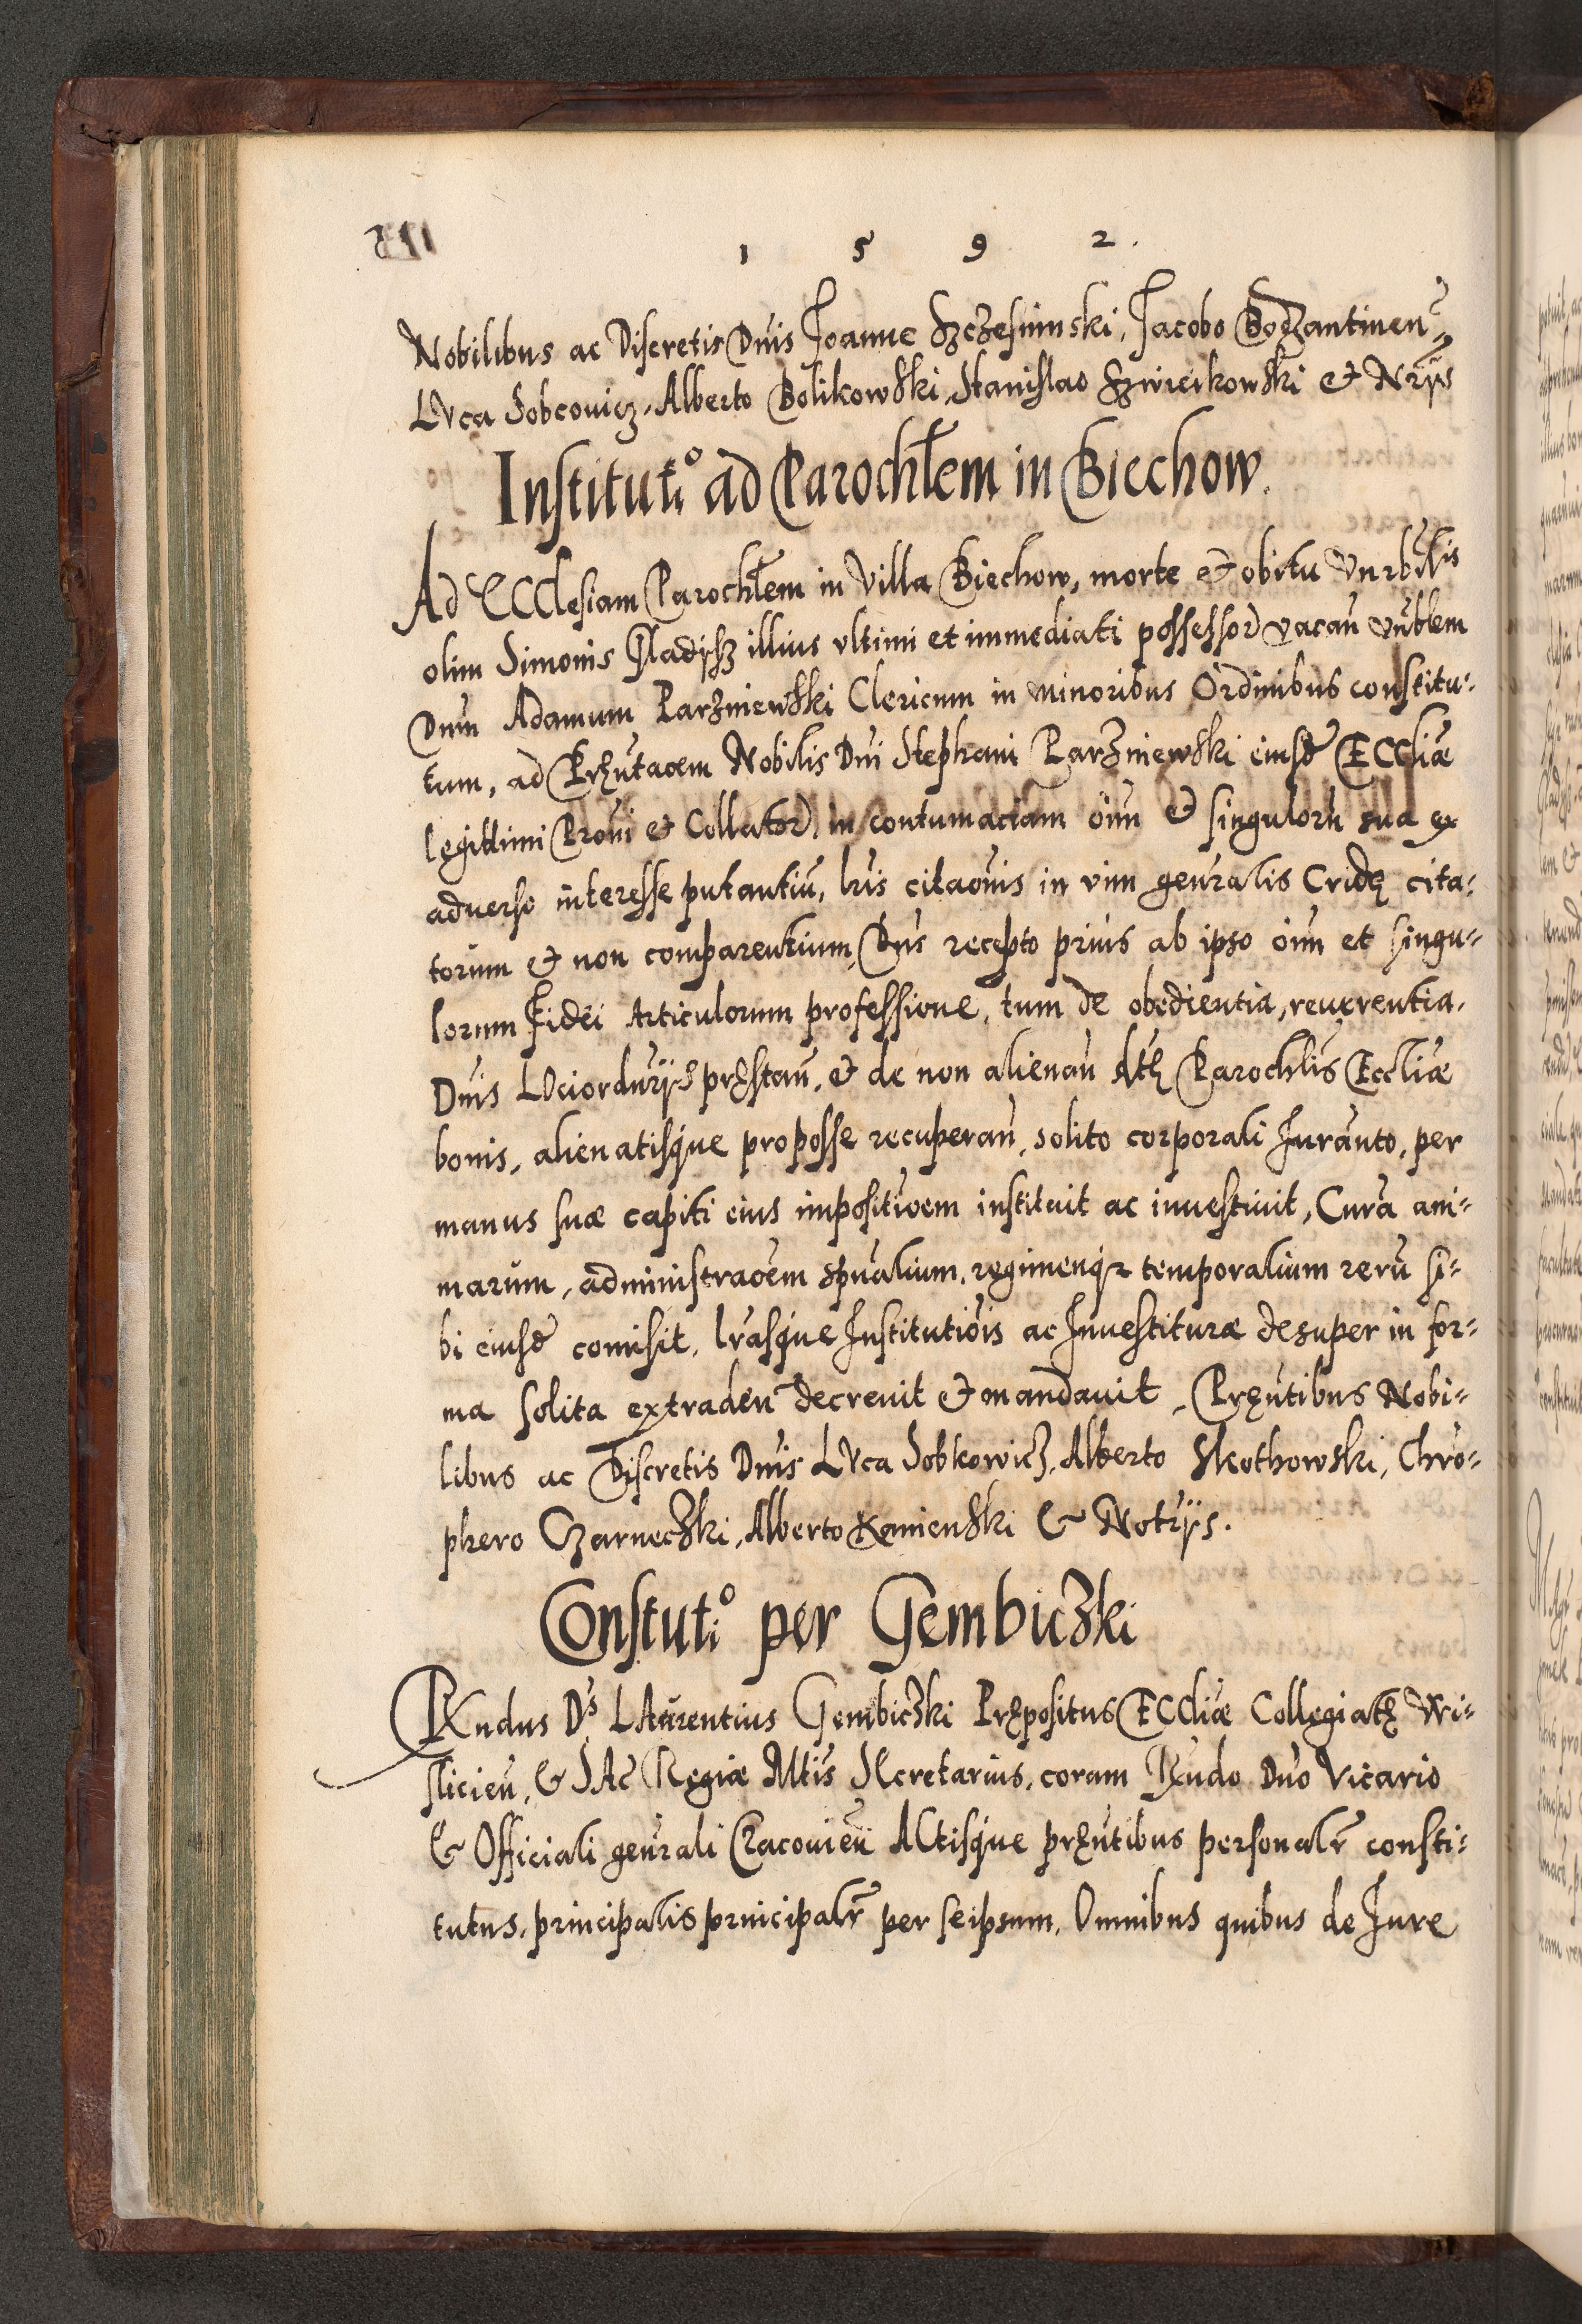 1 5 9 2.
Nobilibus ac Discretis Dnis Joanne Szczesinnski, Jacobo Bodzantinen
LVca Sobcouicz, Alberto Bolikowski, Stanislao Szwieikowski et Nrijs
Institutio ad Parochlem in Biechow.
Ad ECClesiam Parochlem in Villa Biechow, morte et obitu Vnrbilis
olim Simonis Gladijsz illius vltimi et immediati possessor vacan vnblem
Dnm Adamum Parzniewski Clericum in minoribus Ordinibus constitu-
tum, ad Pręntaoem Nobilis Dni Stephani Parzniewski eiusd ECcliæ
legittimi Proni et Collator, in contumaciam oim et singulorh sua ex
aduerso interesse putantiu, lris citaonis in vim genralis Cridę cita-
torum et non comparentium, Dns recepto prius ab ipso oim et singu-
lorum Fidei Articulorum professione, tum de obedientia, reuerentia,
Dnis LOciordnrijs pręstan, et de non alienan dtę Parochlis Eccliæ
bonis, alienatisque proposse recuperan, solito corporali Juranto, per
manus suæ capiti eius impositioem instituit ac inuestiuit, Cura ani-
marum, administraoem spualium, regimenq temporalium reru si-
bi eiusd comisit, lrasque Institutiois ac Inuestituræ desuper in for-
ma solita extraden decreuit et mandauit, Pręntibus Nobi-
libus ac Discretis Dnis LVca Sobkowicz, Alberto Skothowski, Chro-
phero Czarneczki, Alberto Kamienski et Notrijs.
Constutio per Gembiczki
RXndus Ds LAurentius Gembiczki Prępositus ECcliæ Collegiatę Wi-
slicien, et SAc Regiæ Mtis SEcretarius, coram RXndo Dno Vicario
et Officiali genrali Cracouien ACtisque pręntibus personalr consti-
tutus, principalis principalr per seipsum, Omnibus quibus de Jure